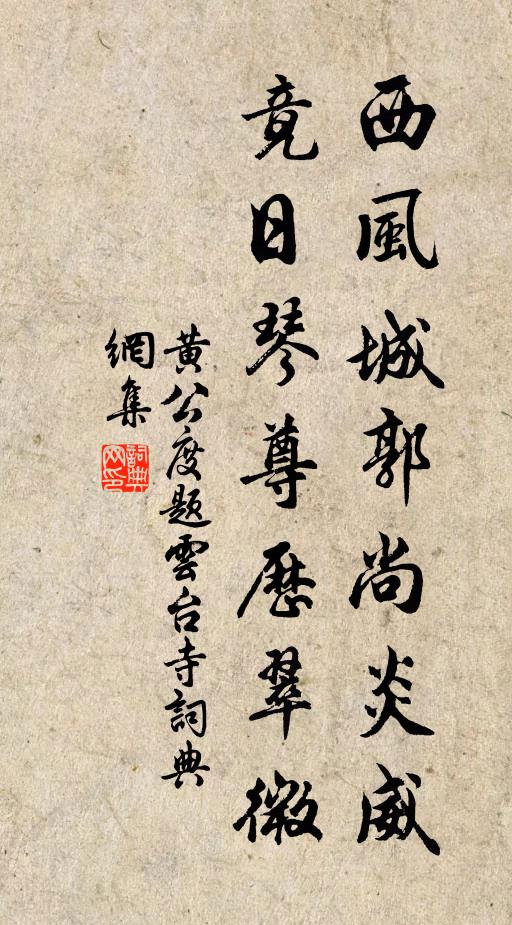 西風城郭尚炎威
竟日琴尊歷翠微
黃公度題雲台寺詞典
網集
詞典網印